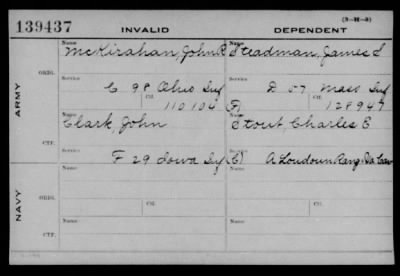 139437 INVALID DEPENDENT (3-H-3)
Name Name
McKirahan, John R Steadman, James S
ORIG.
Service Service
C 98 Ohio Inf D 57 Mass Inf
Ctf. Ctf.
110104 128947
ARMY
Name Name
Clark, John Stout, Charles E
CTF.
F 29 Iowa Inf A Loudoun Rang Va Cav
Name Name
ORIG.
Service Ctf. Service Ctf.
NAVY
Name Name
CTF.